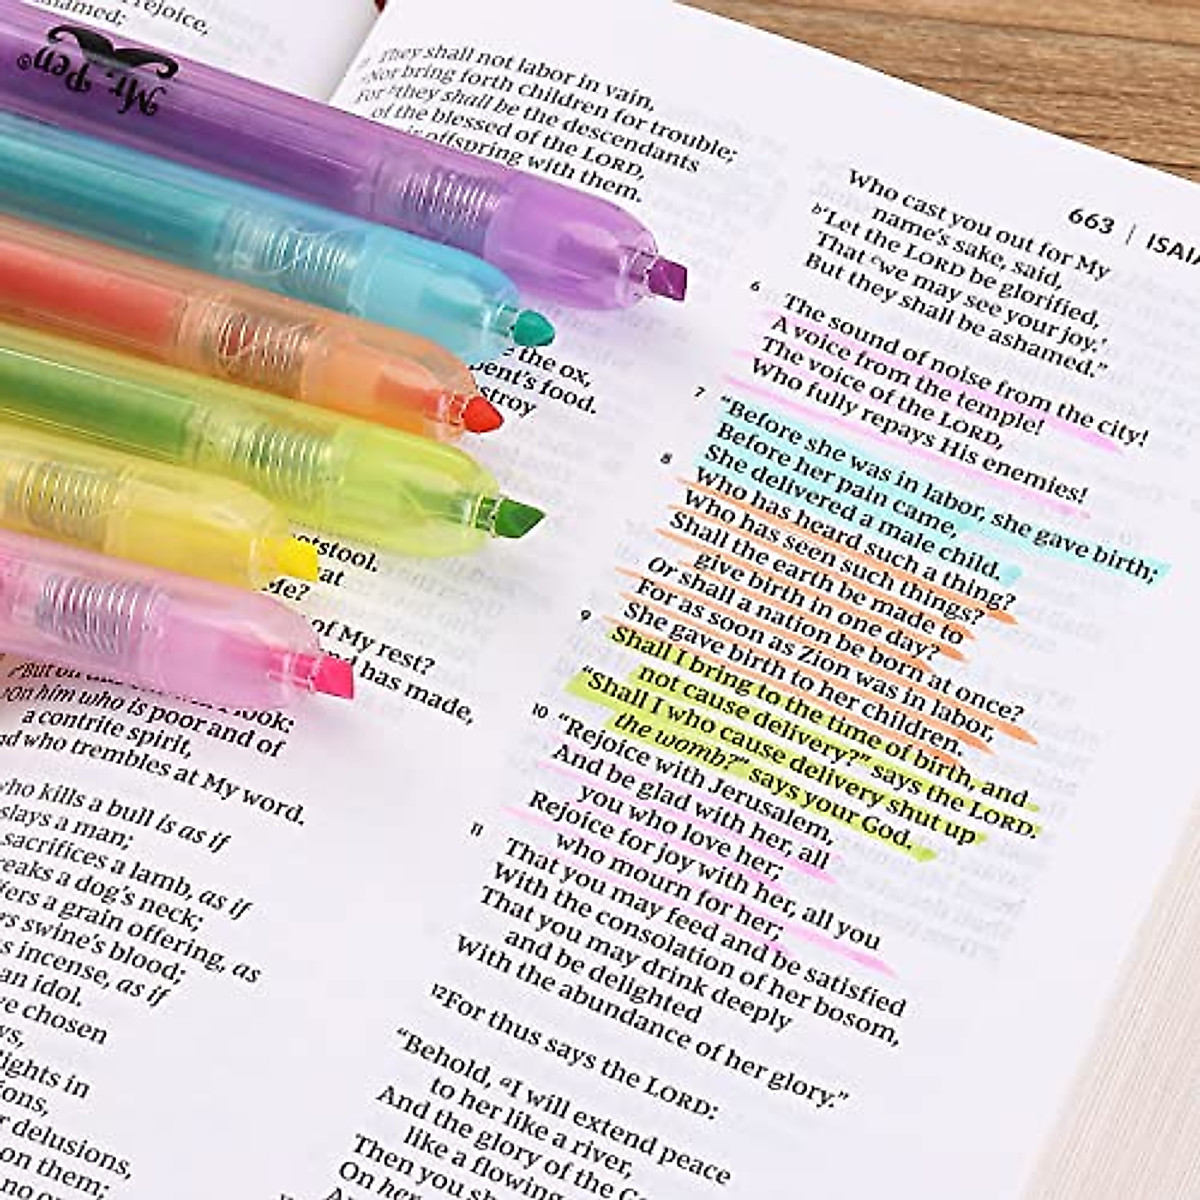 rejoice,
named;
Mr. Pen®
They shall not labor in vain,
Nor bring forth children for trouble;
For they shall be the descendants
of the blessed of the LORD,
offspring with them.
the ox,
food.
stroy
otstool.
at
Me?
of My rest?
has made,
look:
On him who is poor and of
a contrite spirit,
who trembles at My word.
who kills a bull is as if
slays a man;
sacrifices a lamb, as if
breaks a dog's neck;
offers a grain offering, as
swine's blood;
incense, as if
an idol.
chosen
ights in
ions,
delusions,
on them;
no
663 | ISAIA
Who cast you out for My
name's sake, said,
b'Let the LORD be glorified,
That cwe may see your joy.'
But they shall be ashamed."
6 The sound of noise from the city!
A voice from the temple!
The voice of the LORD,
Who fully repays His enemies!
7 "Before she was in labor, she gave birth;
Before her pain came,
She delivered a male child.
8 Who has heard such a thing?
Who has seen such things?
Shall the earth be made to
give birth in one day?
Or shall a nation be born at once?
For as soon as Zion was in labor,
She gave birth to her children.
9 Shall I bring to the time of birth, and
not cause delivery?" says the LORD.
"Shall I who cause delivery shut up
the womb?" says your God.
10 "Rejoice with Jerusalem,
And be glad with her, all
you who love her;
Rejoice for joy with her, all you
who mourn for her;
11 That you may feed and be satisfied
With the consolation of her bosom,
That you may drink deeply
and be delighted
With the abundance of her glory."
12For thus says the LORD:
"Behold, aI will extend peace
to her like a river,
And the glory of the
like a flowing
Then you sh
On her